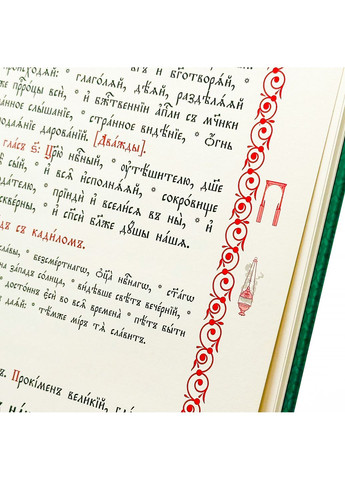 ъ и҆ бг҃отворѧ́й,
происходѧ́й: глаго́лѧй, дѣ́ѧй, раздѣлѧ́ѧй
же прⷪ҇ро́цы всѝ, * и҆ бжⷭ҇твеннїи а҆пⷭ҇ли съ мч҃нки
ранное слы́шанїе, * стра́нное видѣ́нїе, * ѻ҆́гнь
подаѧ̑нїѧ дарова́нїй. [Два́жды].
гла́съ ѕ҃: Цр҃ю̀ нбⷭ҇ный, * ᲂу҆тѣ́шителю, дш҃е
сы́й, * и҆ всѧ̑ и҆сполнѧ́ѧй, * сокро́вище
пода́телю, * прїидѝ и҆ всели́сѧ въ ны̀, * и҆
скве́рны, * и҆ сп҃сѝ бл҃же дꙋ́шы на́шѧ.
съ кади́ломъ.
сла́вы, * безсме́ртнагѡ, ѻ҆ц҃а̀ нбⷭ҇нагѡ, * ст҃а́гѡ
на за́падъ со́лнца, * ви́дѣвше свѣ́тъ вече́рнїй, *
досто́инъ є҆сѝ во всѧ̑ времена̀ * пѣ́тъ бы́ти
даѧ́й: * тѣ́мже мі́ръ тѧ̀ сла́витъ.
Проки́менъ вели́кїй,